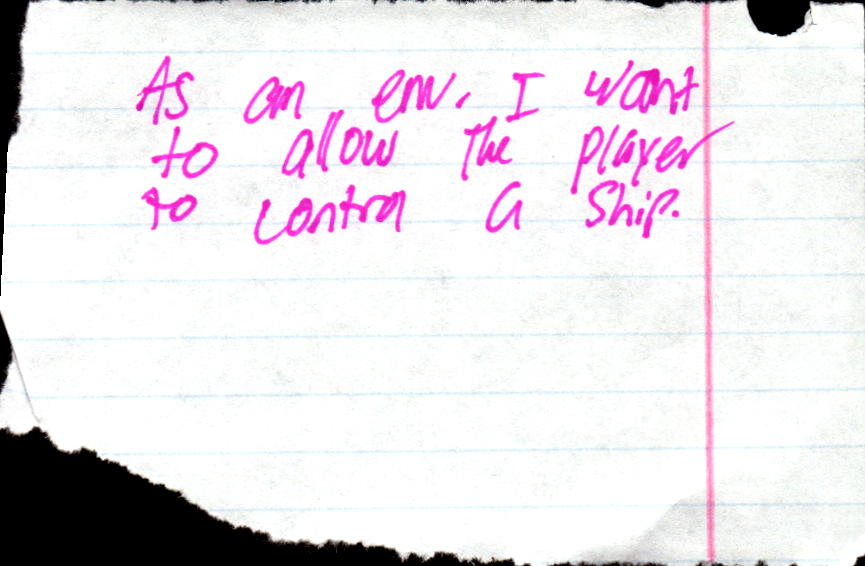 As an env. I want
to allow the player
to control a ship.